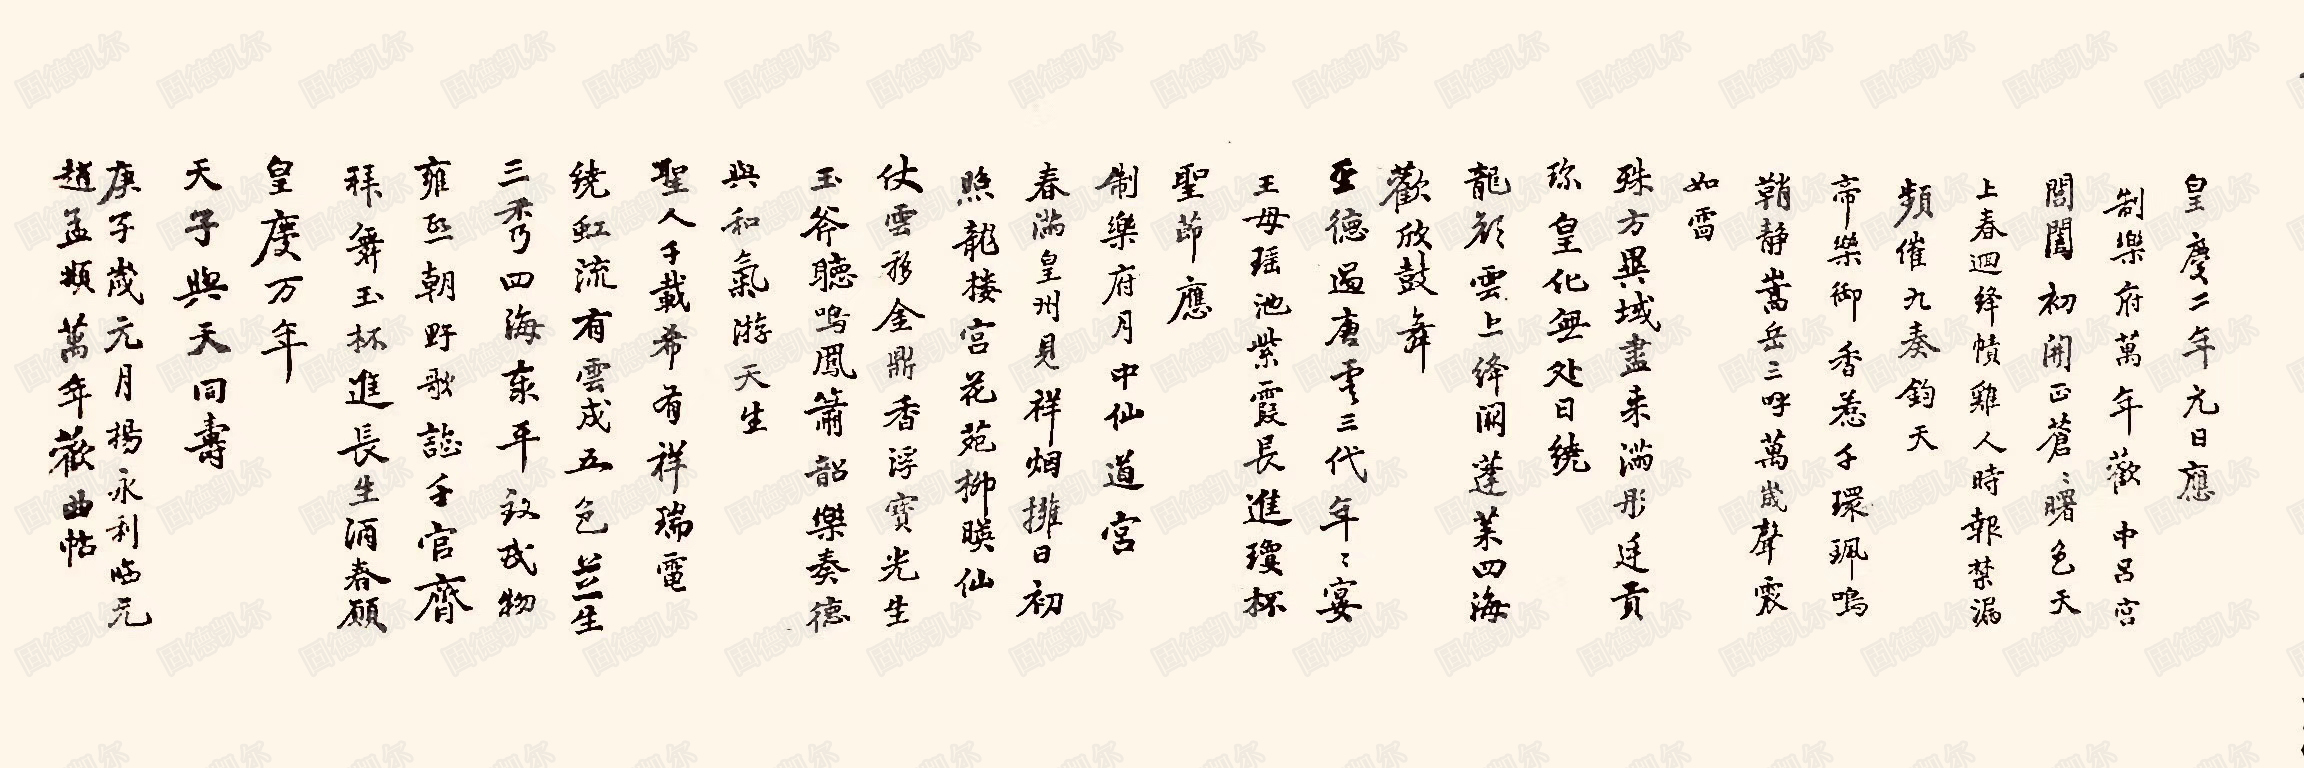 皇慶二年元日應
制樂府萬年歡 中呂宮
閶闔初開正蒼〻曙色天
上春迴絳幘雞人時報禁漏
頻催九奏鈞天
帝樂御香惹千環珮鳴
鞘静嵩岳三呼萬歲聲震
如雷
殊方異域盡来满彤廷貢
琛皇化無处日繞
龍顔雲上絳闕蓬莱四海
歡欣鼓舞
至德過唐虞三代年〻宴
王母瑶池紫霞長進瓊杯
聖節應
制樂府月中仙道宮
春满皇州見祥烟擁日初
照龍楼宫花苑柳暎仙
仗雲移金鼎香浮寶光生
玉斧聽鳴鳳簫韶樂奏德
與和氣游天生
聖人千載希有祥瑞電
繞虹流有雲成五色芝生
三秀四海泰平致民物
雍熙朝野歌謡千官齊
拜舞玉杯進長生酒春願
皇慶万年
天子與天同壽
庚子歲元月楊永利临元
趙孟頫萬年歡曲帖
固德凯尔